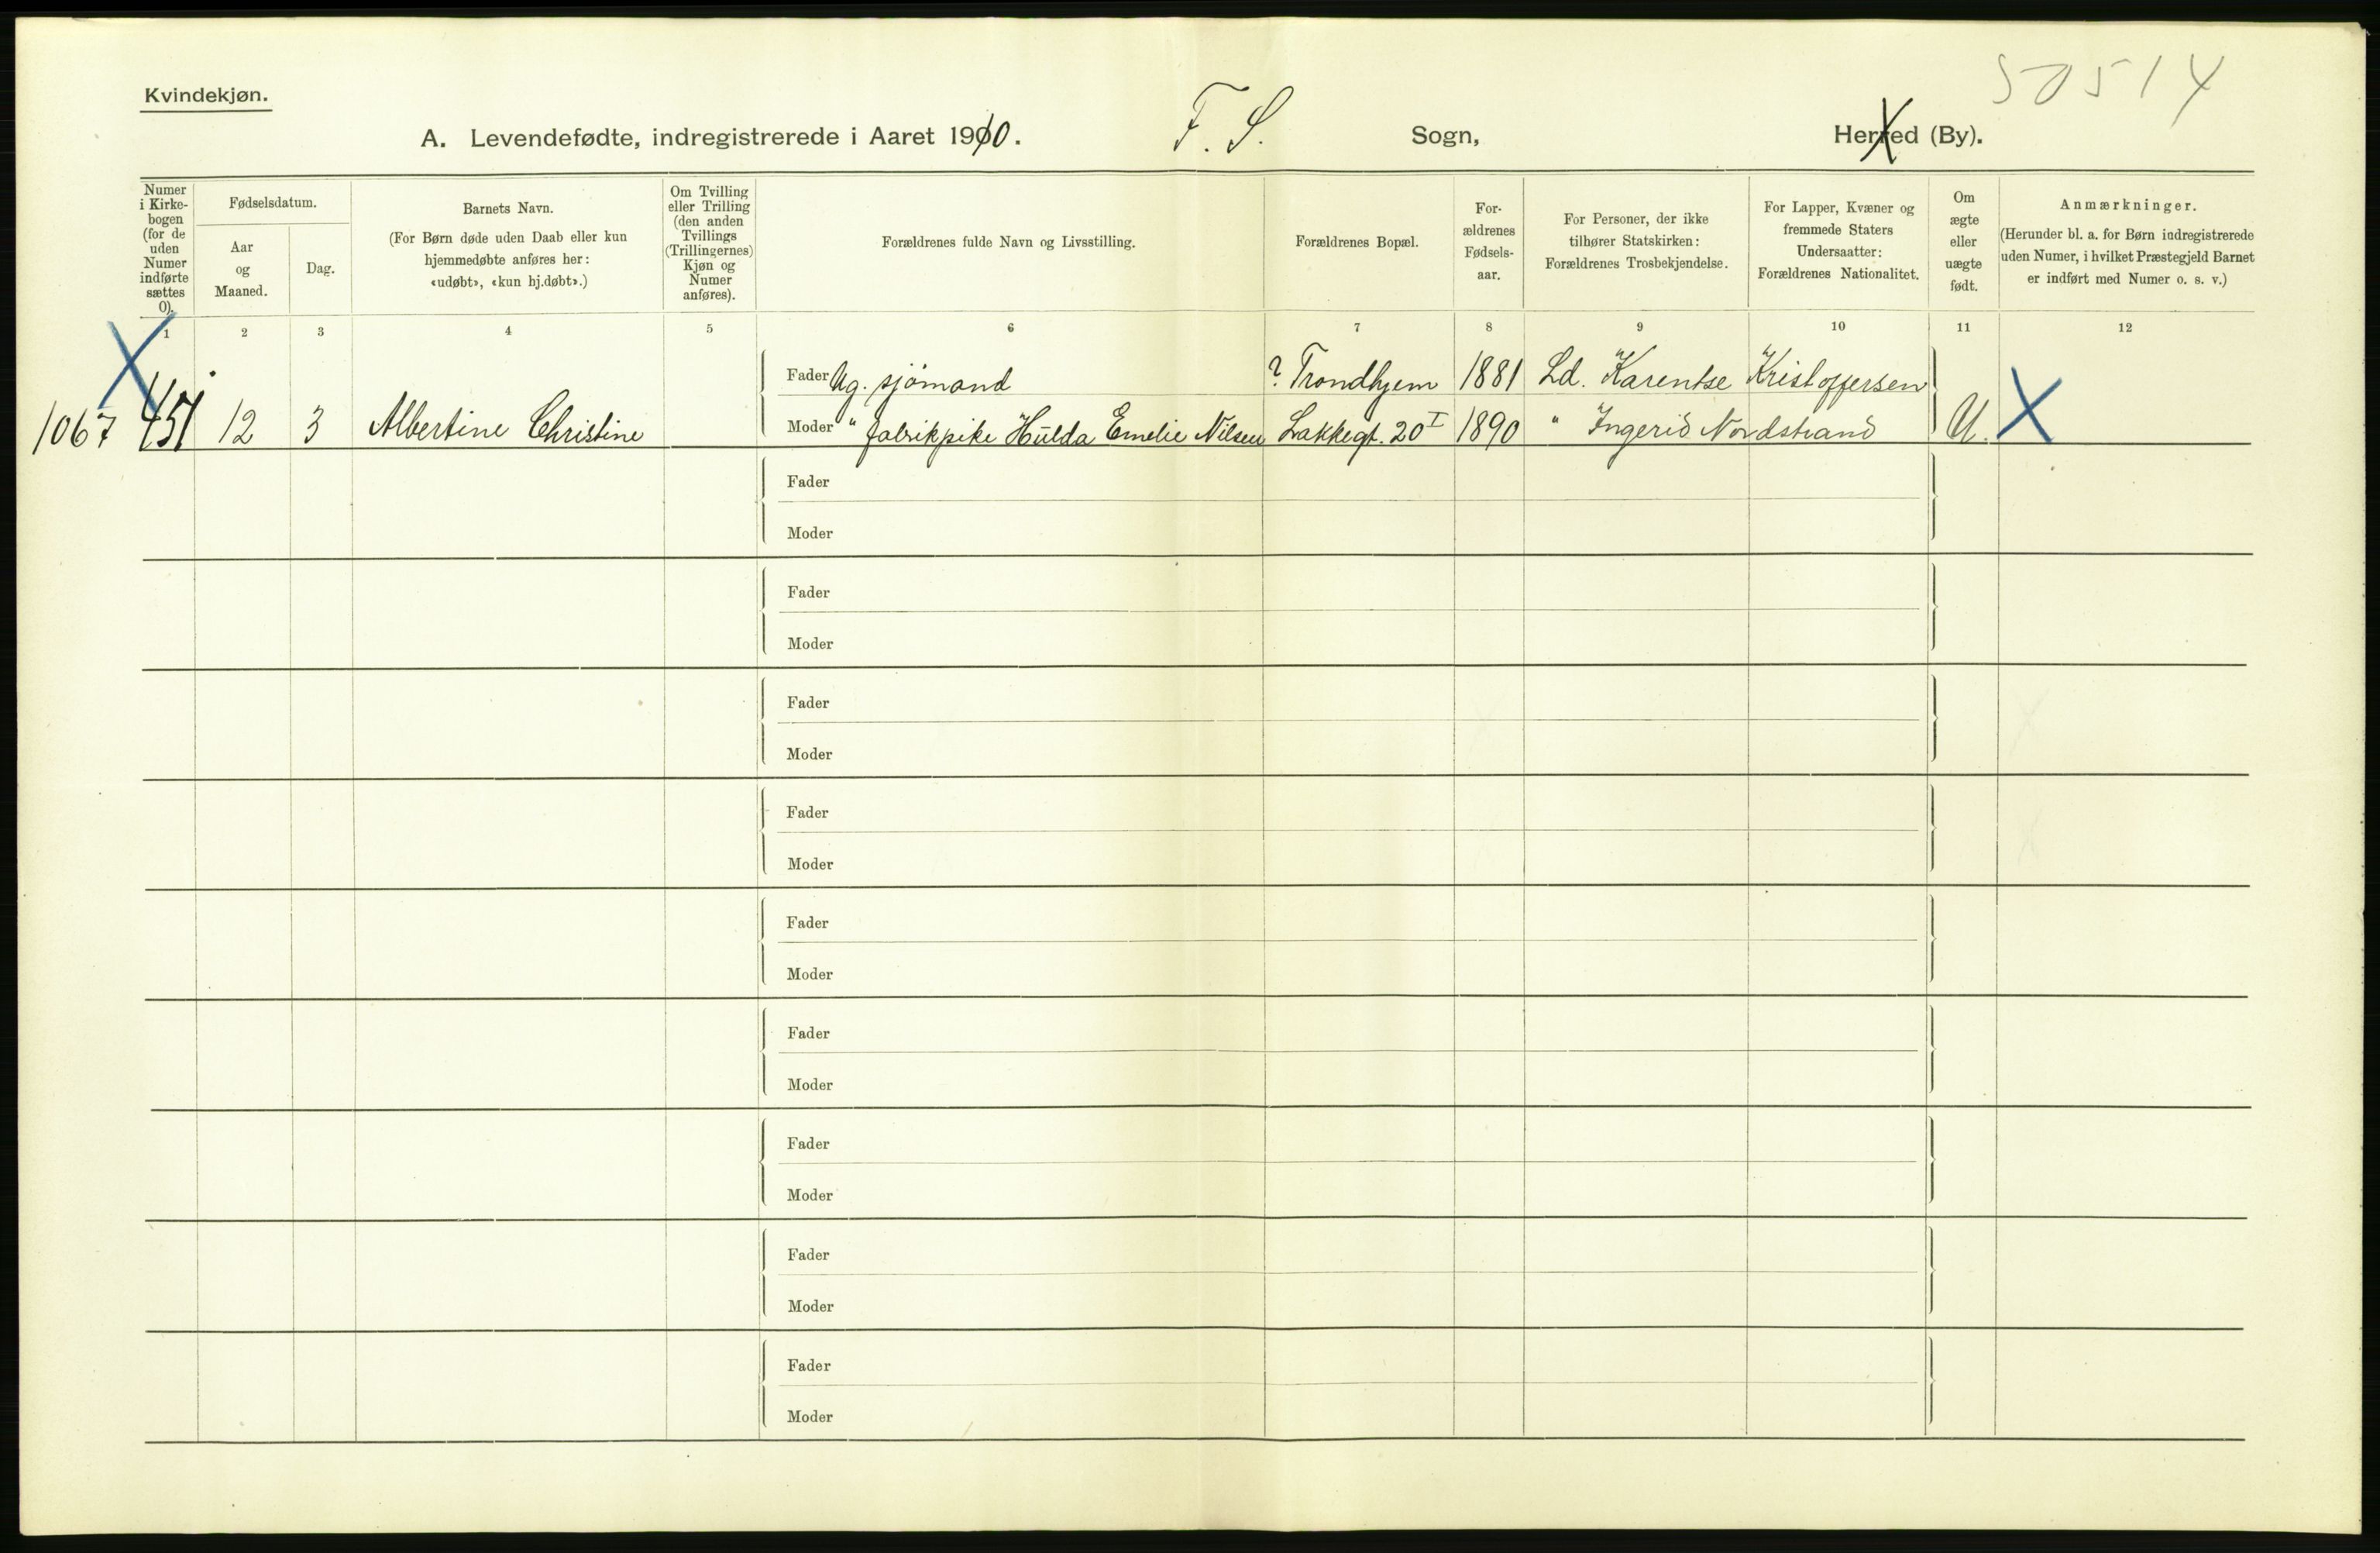 50514
Kvindekjøn.
A. Levendefødte, indregistrerede i Aaret 1910. F. S. Sogn, Herred (By).
Numer
i Kirke-
bogen
(for de
uden
Numer
indførte
sættes
0).
Fødselsdatum.
Aar
og
Maaned.
Dag.
Barnets Navn.
(For Børn døde uden Daab eller kun
hjemmedøbte anføres her:
«udøbt», «kun hj.døbt».)
Om Tvilling
eller Trilling
(den anden
Tvillings
(Trillingernes)
Kjøn og
Numer
anføres).
Forældrenes fulde Navn og Livsstilling.
Forældrenes Bopæl.
For-
ældrenes
Fødsels-
aar.
For Personer, der ikke
tilhører Statskirken:
Forældrenes Trosbekjendelse.
For Lapper, Kvæner og
fremmede Staters
Undersaatter:
Forældrenes Nationalitet.
Om
ægte
eller
uægte
født.
Anmærkninger.
(Herunder bl. a. for Børn indregistrerede
uden Numer, i hvilket Præstegjeld Barnet
er indført med Numer o. s. v.)
1 2 3 4 5 6 7 8 9 10 11 12
Fader Ug. sjömand ? Trondhjem 1881 Ld. Karentse Kristoffersen
1067 451 12 3 Albertine Christine Moder " fabrikpike Hulda Emelie Nilsen Lakkegt. 20 I 1890 " Ingerid Nordstrand U. X
Fader
Moder
Fader
Moder
Fader
Moder
Fader
Moder
Fader
Moder
Fader
Moder
Fader
Moder
Fader
Moder
Fader
Moder